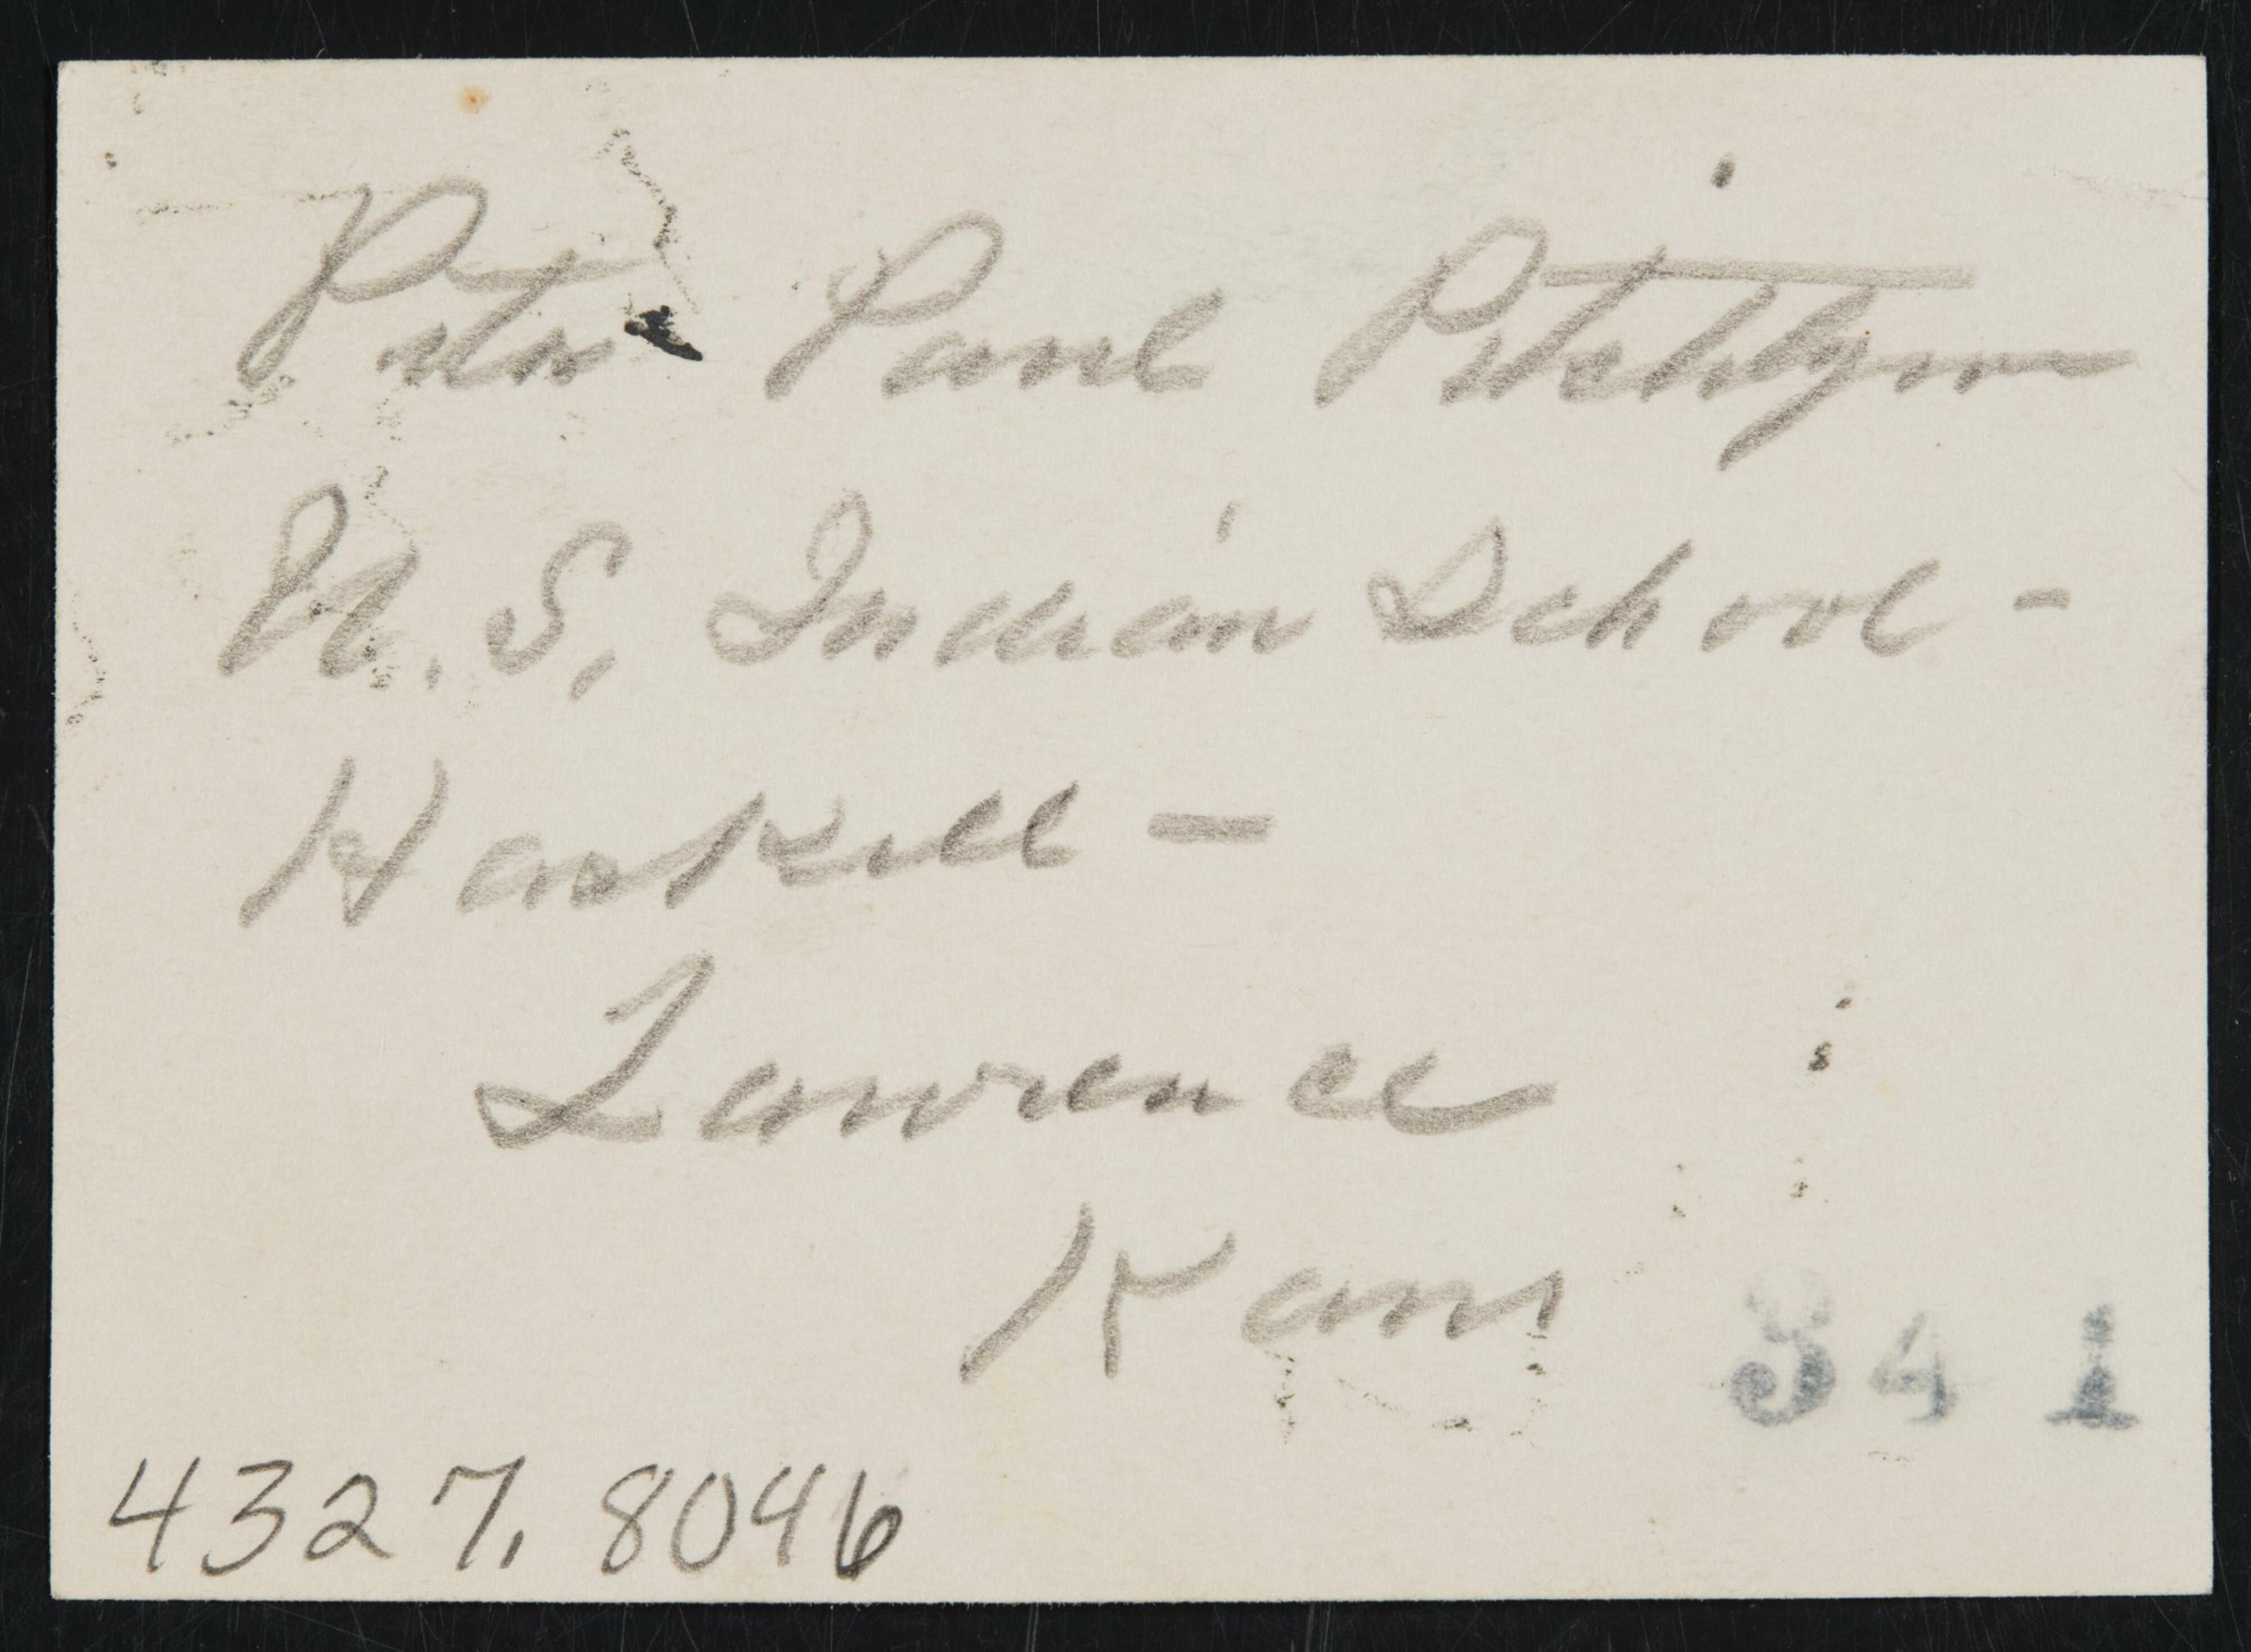 Peter Paul Pitchlynn
U. S. Indian School -
Haskell -
Lawrence
Kans
341
4327.8046